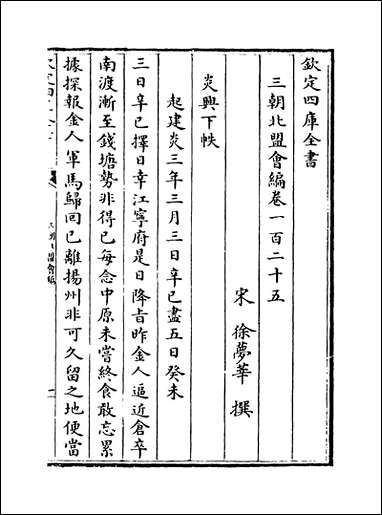 欽定四庫全書
三朝北盟會編卷一百二十五
宋　徐夢莘　撰
炎興下帙
起建炎三年三月三日辛巳盡五日癸未
三日辛巳擇日幸江寧府是日降㫖昨金人逼近倉卒
南渡漸至錢塘勢非得已每念中原未嘗終食敢忘累
據探報金人軍馬歸回已離揚州非可久留之地便當
三朝北盟會編
一